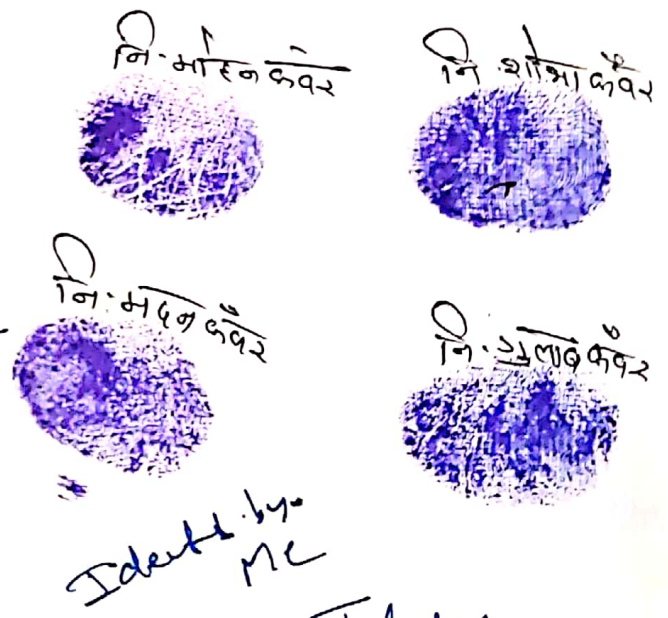 नि. मोहन कंवर
नि. शोभा कँवर
नि. मदन कँवर
नि. गुलाब कँवर
Identd. by.
Me